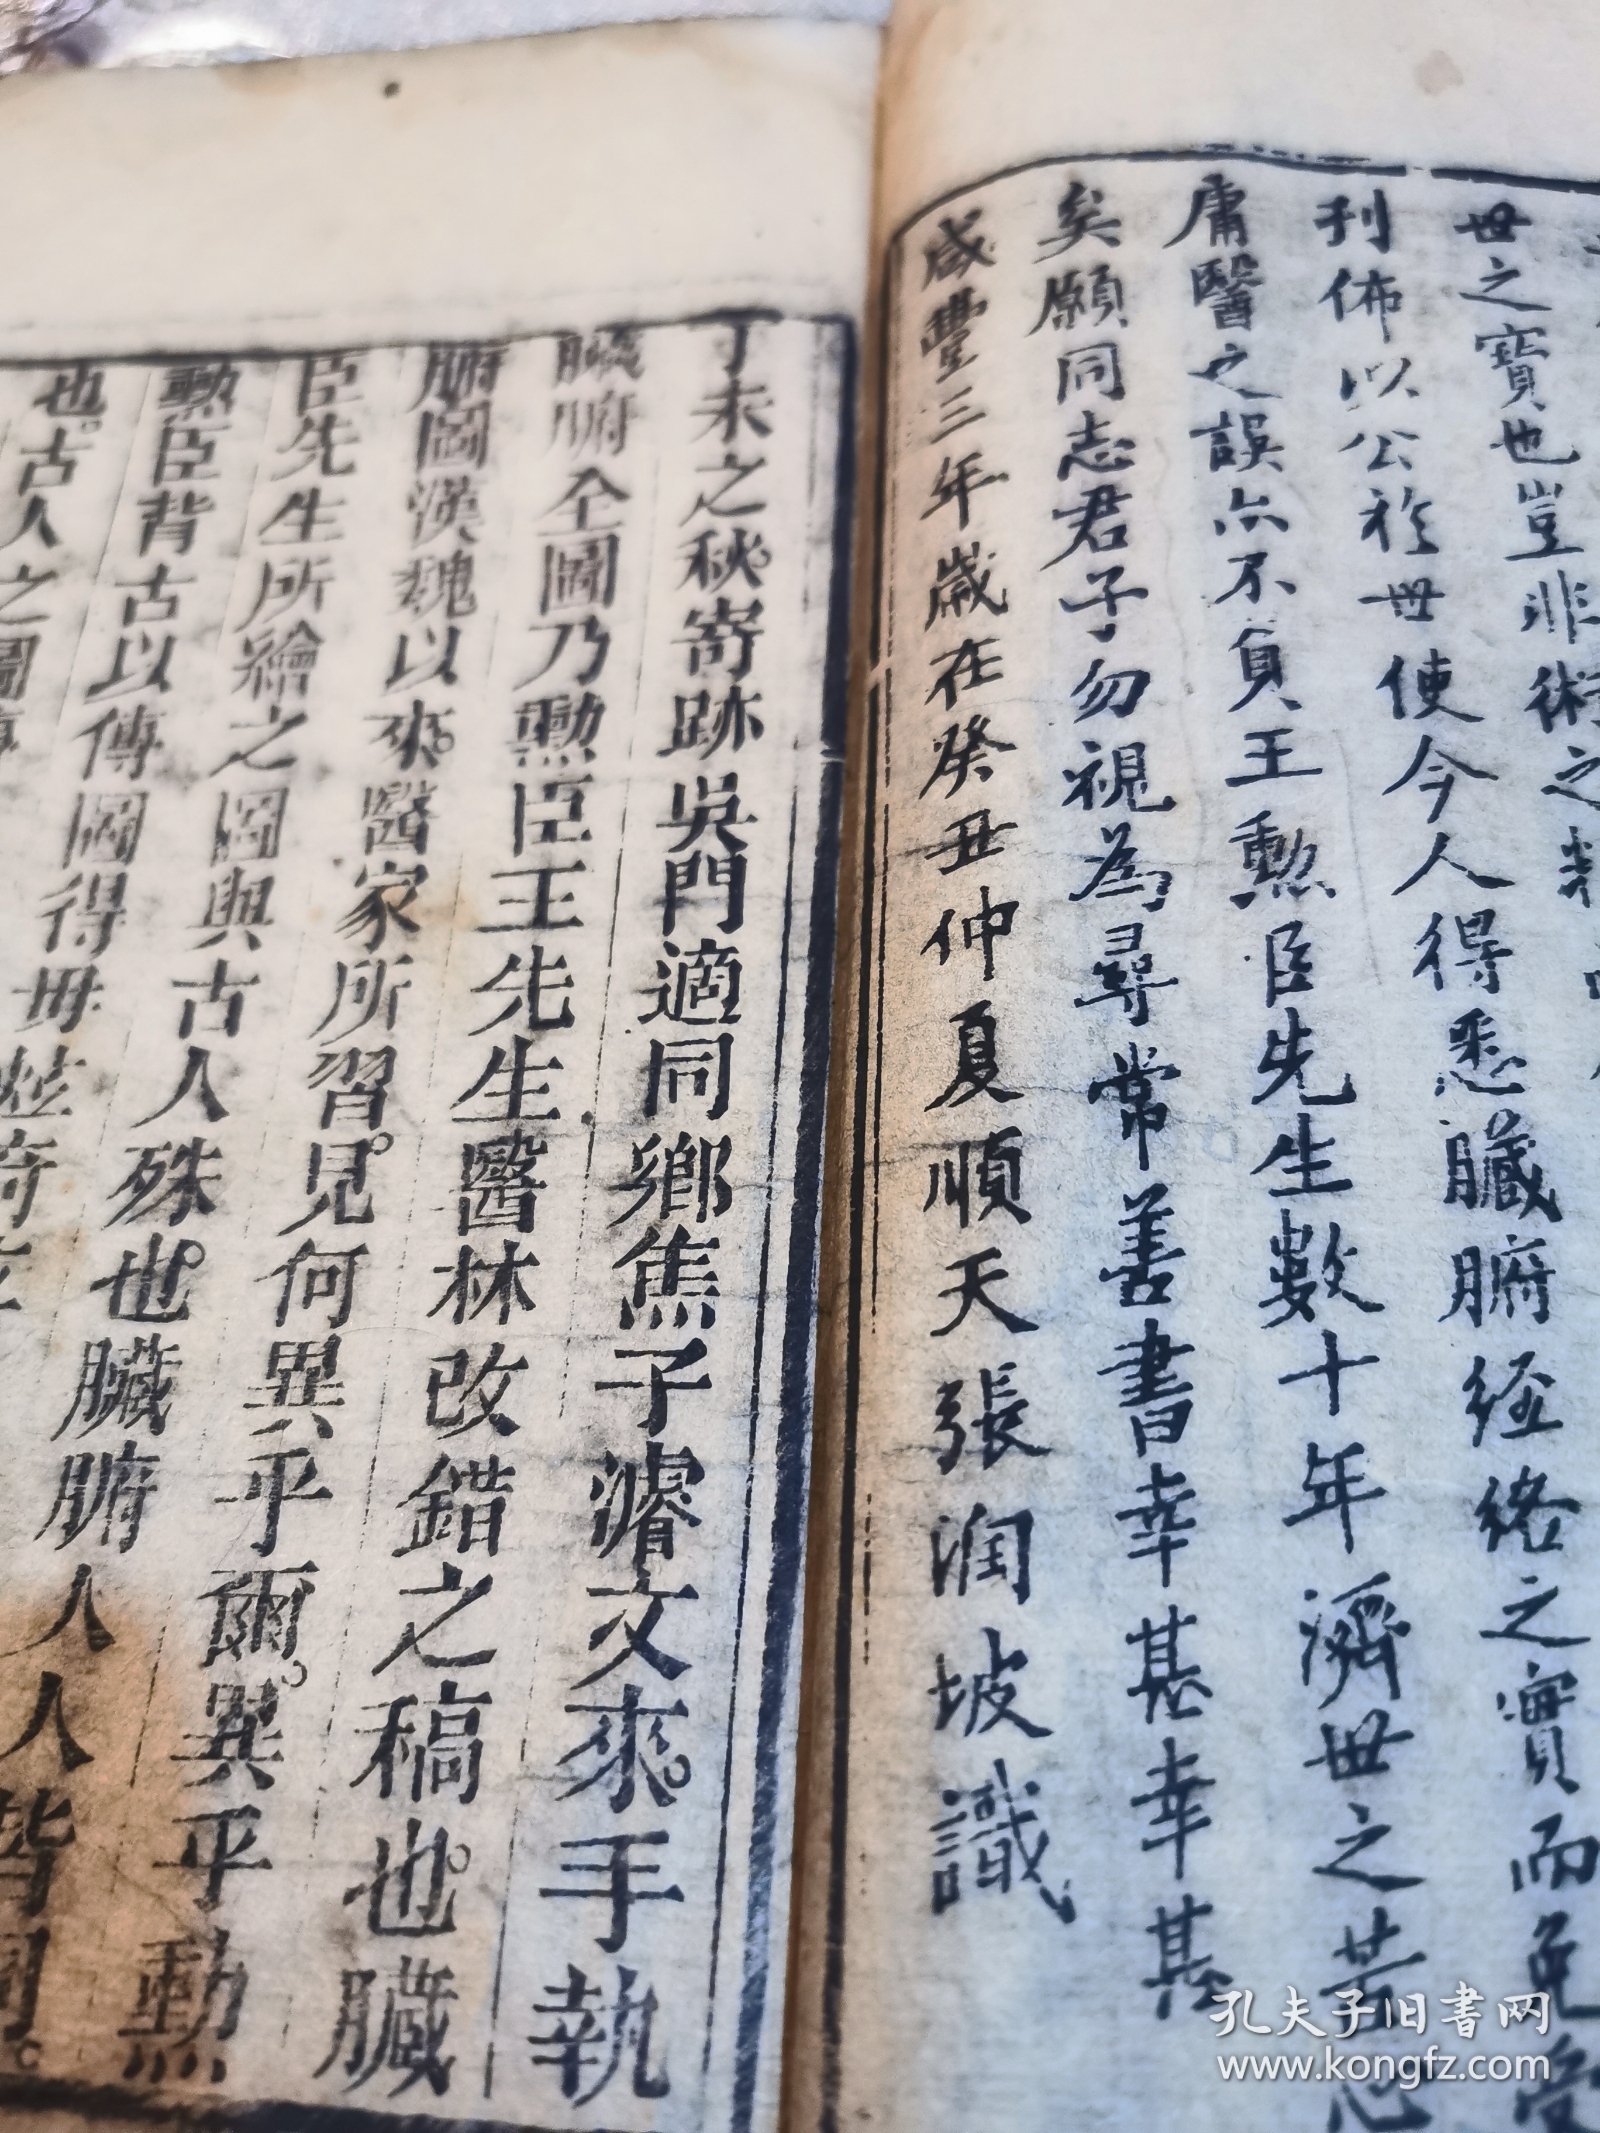 世之寶也豈非術之
刊佈以公於世使今人得悉臟腑経络之實而免受
庸醫之誤亦不負王勲臣先生數十年濟世之苦心
矣願同志君子勿視為尋常善書幸甚幸甚
咸豐三年歲在癸丑仲夏順天張润坡識
丁未之秋。寄跡吳門適同鄉焦子濬文來。手執
臟腑全圖乃勲臣王先生醫林改錯之稿也。臟
腑圖漢魏以來。醫家所習。見何異乎爾。異乎勲
臣先生所繪之圖與古人殊也。臟腑人人皆同。
勲臣背古以傳圖得毋
也。古人之圖
孔夫子旧書网
www.kongfz.com